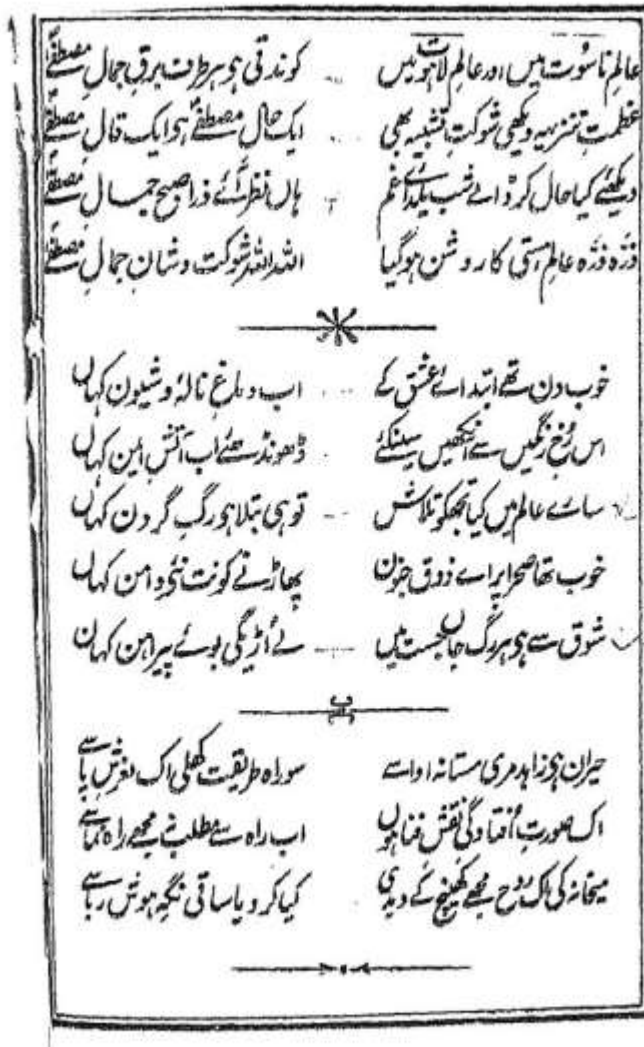 عالم ناسوت میں اور عالم لاہوت میں ... کوندتی ہو ہر طرف برق جمالِ مصطفےٰؐ
عظمت تنزیہہ دیکھی شوکتِ تشبیہ بھی ... ایک حال مصطفےٰؐ ہو ایک قالِ مصطفےٰؐ
دیکھئے کیا حال کر ڈالے شب یلدائے غم ... ہاں نظر آئے ذرا صبح جمالِ مصطفےٰؐ
ذرّہ ذرّہ عالم ہستی کا روشن ہوگیا اللہ اللہ شوکت و شانِ جمالِ مصطفےٰؐ
خوب دن تھے ابتدائے عشق کے ... اب دماغِ نالۂ و شیون کہاں
اس رُخ رنگیں سے آنکھیں سینکئے ڈھونڈھئے اب آتشِ ایمن کہاں
سارے عالم میں کیا تجھکو تلاش ... توہی بتلا ہو رگِ گردن کہاں
خوب تھا صحرا پر اے ذوق جنون پھاڑنے کو نت نئی دامن کہاں
شوق سے ہو ہر رگ جاں جست میں ... لے اُڑیگی بوئے پیراہن کہاں
حیران ہو زاہد مری مستانہ ادا سے سو راہ طریقت کھلی اک لغزشِ پا سے
اک صورتِ اُفتادگی نقش فنا ہوں اب راہ سے مطلب نہ مجھے راہ نما سے
میخانہ کی اک روح مجھے کھینچ کے دیدی کیا کردیا ساقی نگہِ ہوش ربا سے